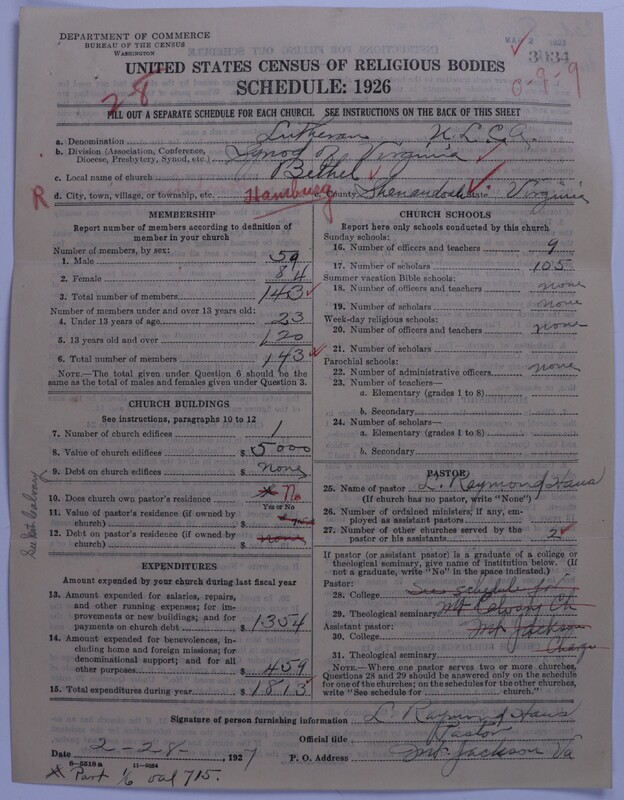 DEPARTMENT OF COMMERCE
BUREAU OF THE CENSUS
WASHINGTON
3834
UNITED STATES CENSUS OF RELIGIOUS BODIES
SCHEDULE: 1926
28
0-9-9
FILL OUT A SEPARATE SCHEDULE FOR EACH CHURCH. SEE INSTRUCTIONS ON THE BACK OF THIS SHEET
a. Denomination Lutheran U. L. C. A.
b. Division (Association, Conference, Diocese, Presbytery, Synod, etc.) Synod of Virginia
c. Local name of church Bethel
R d. City, town, village, or township, etc. Hamburg e. County Shenandoah State Virginia
MEMBERSHIP
Report number of members according to definition of member in your church
Number of members, by sex:
1. Male 59
2. Female 84
3. Total number of members 143
Number of members under and over 13 years old:
4. Under 13 years of age 23
5. 13 years old and over 120
6. Total number of members 143
NOTE.—The total given under Question 6 should be the same as the total of males and females given under Question 3.
CHURCH BUILDINGS
See instructions, paragraphs 10 to 12
7. Number of church edifices 1
8. Value of church edifices $ 5000
9. Debt on church edifices $ none
10. Does church own pastor's residence No
Yes or No
11. Value of pastor's residence (if owned by church) $
12. Debt on pastor's residence (if owned by church) $ none
EXPENDITURES
Amount expended by your church during last fiscal year
13. Amount expended for salaries, repairs, and other running expenses; for improvements or new buildings; and for payments on church debt $ 1354
14. Amount expended for benevolences, including home and foreign missions; for denominational support; and for all other purposes $ 459
15. Total expenditures during year $ 1813
CHURCH SCHOOLS
Report here only schools conducted by this church
Sunday schools:
16. Number of officers and teachers 9
17. Number of scholars 105
Summer vacation Bible schools:
18. Number of officers and teachers none
19. Number of scholars none
Week-day religious schools:
20. Number of officers and teachers none
21. Number of scholars
Parochial schools:
22. Number of administrative officers none
23. Number of teachers—
a. Elementary (grades 1 to 8)
b. Secondary
24. Number of scholars—
a. Elementary (grades 1 to 8)
b. Secondary
PASTOR
25. Name of pastor L. Raymond Haus
(If church has no pastor, write "None")
26. Number of ordained ministers, if any, employed as assistant pastors
27. Number of other churches served by the pastor or his assistants 2
If pastor (or assistant pastor) is a graduate of a college or theological seminary, give name of institution below. (If not a graduate, write "No" in the space indicated.)
Pastor:
28. College See schedule for
29. Theological seminary Mt Calvary Ch
Assistant pastor:
30. College Mt Jackson
31. Theological seminary Charge
NOTE.—Where one pastor serves two or more churches, Questions 28 and 29 should be answered only on the schedule for one of the churches; on the schedules for the other churches, write "See schedule for church."
Signature of person furnishing information L. Raymond Haus
Official title Pastor
Date 2-28-, 1927 P. O. Address Mt. Jackson Va
8-5518a 11-9034
* Part 1/6 val 715.